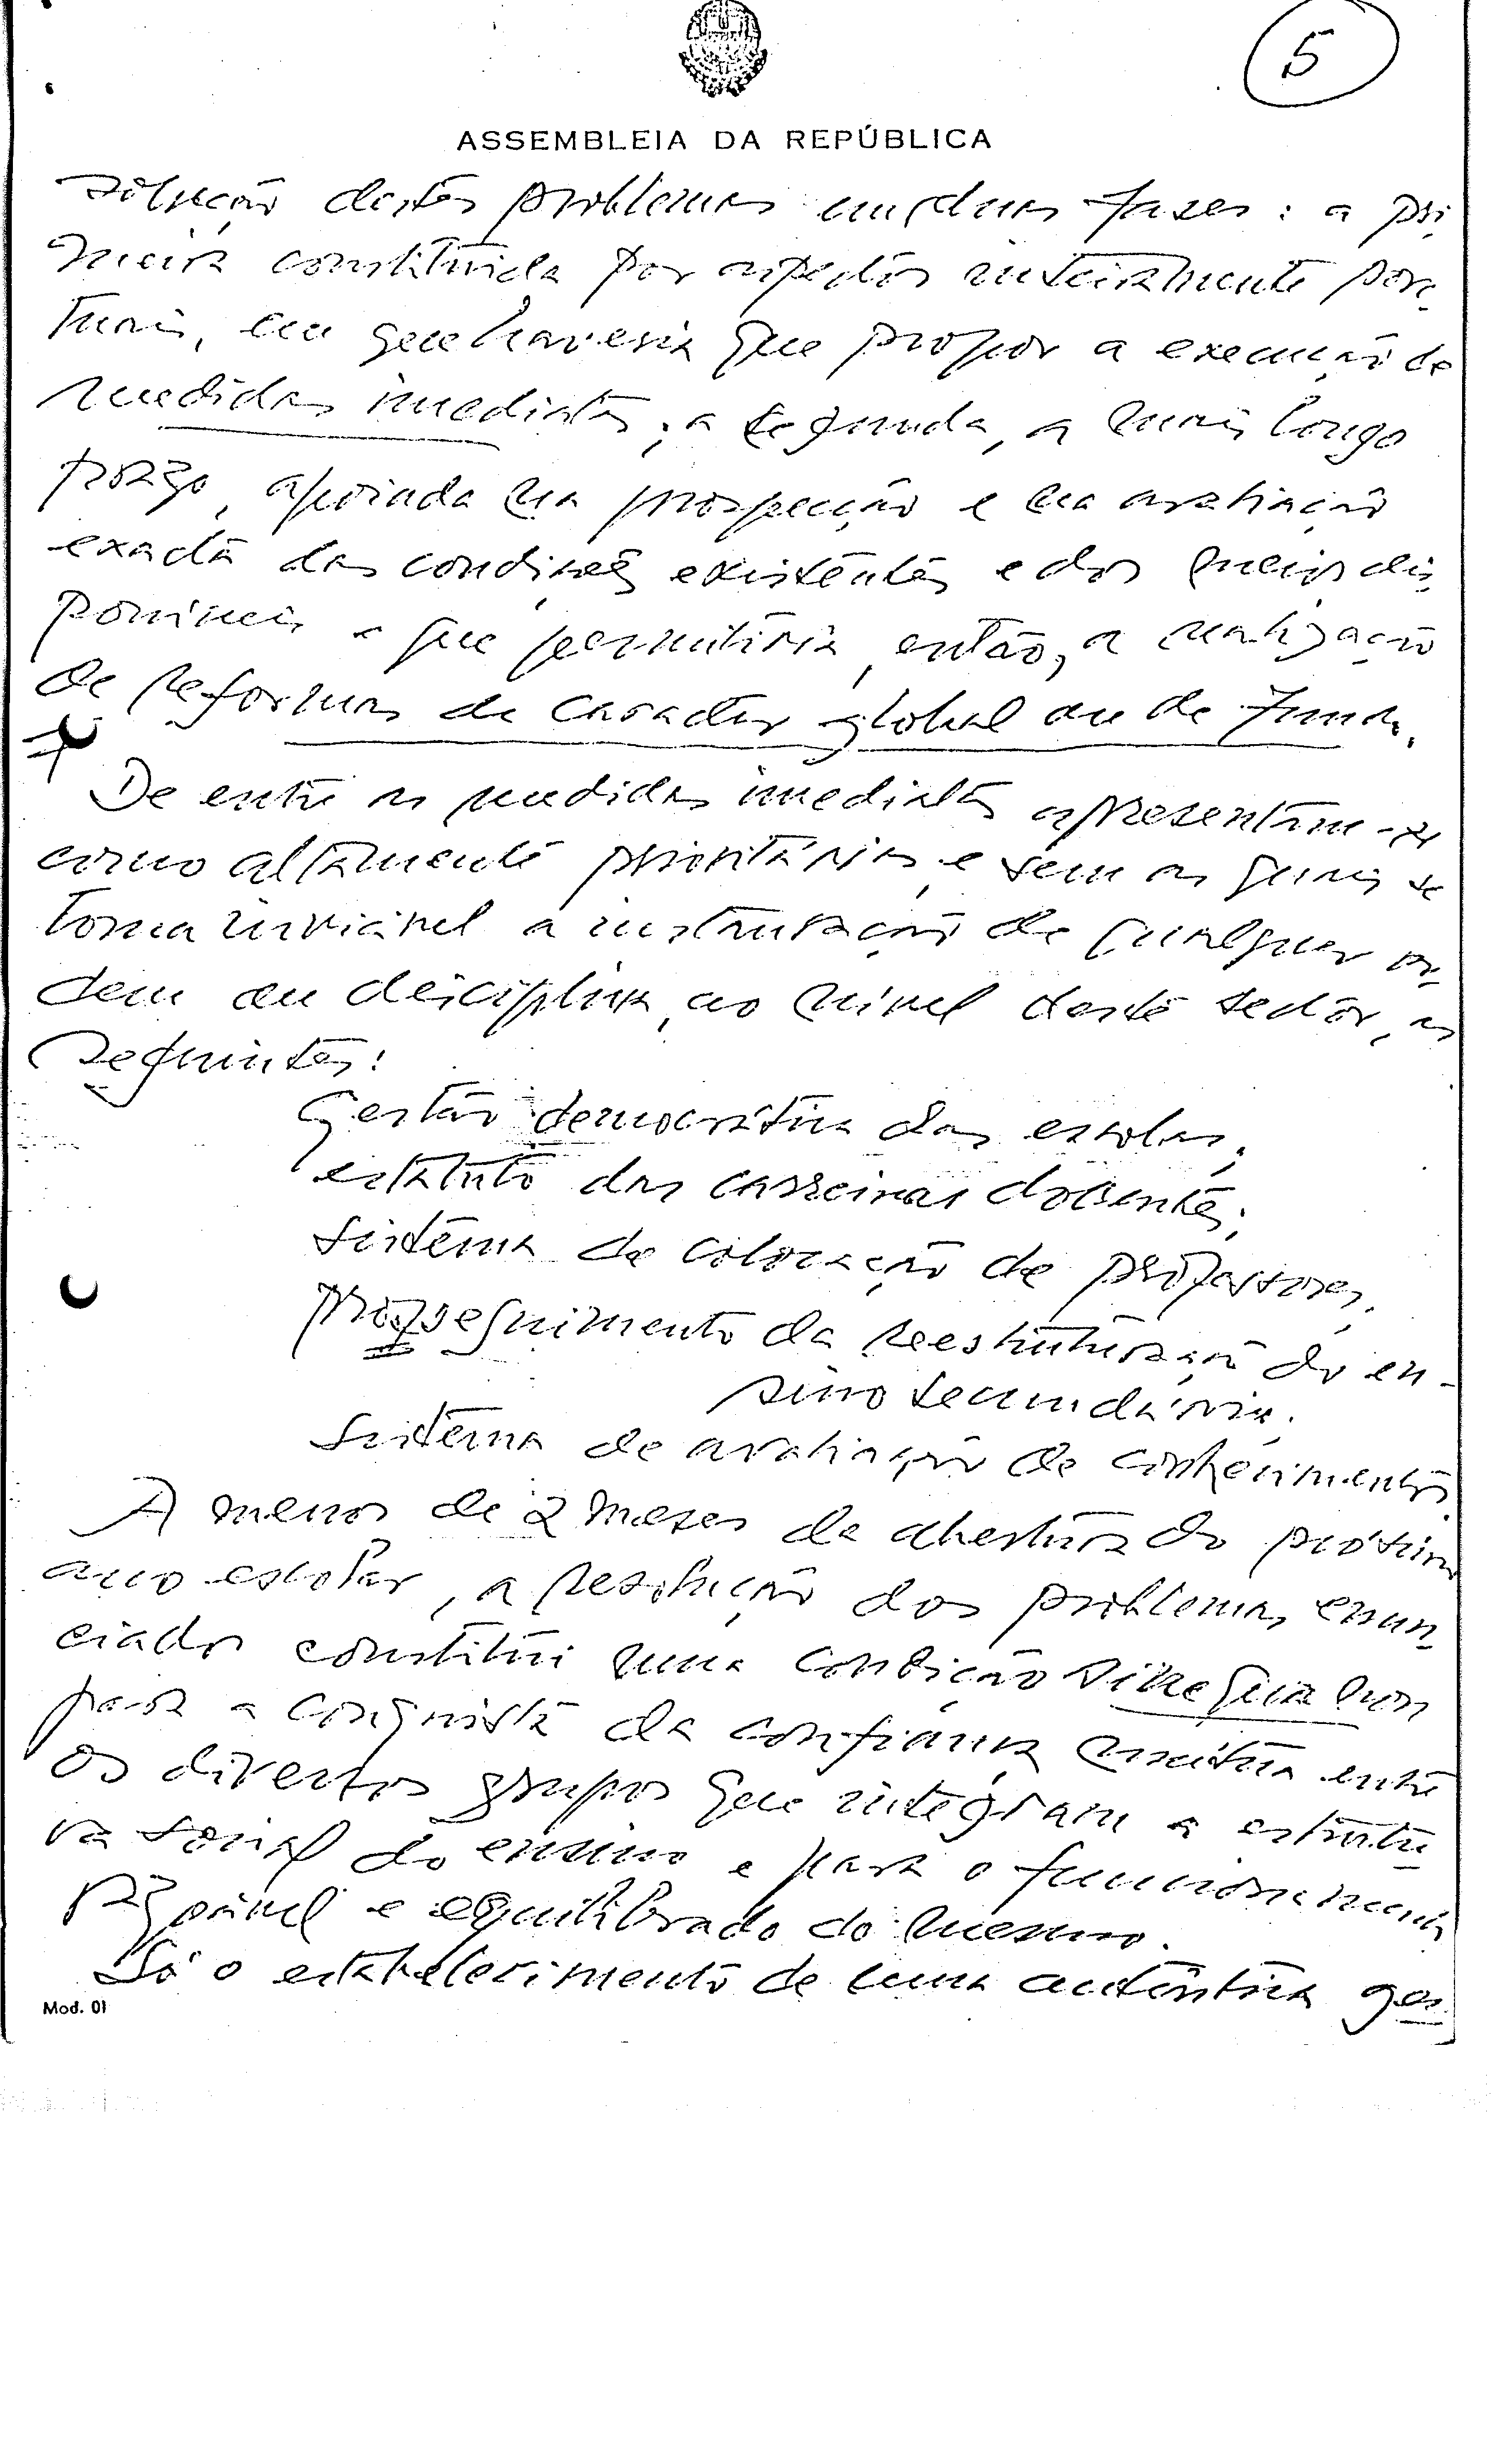 5
ASSEMBLEIA DA REPÚBLICA
solução destes problemas em duas fases: a pri-
meira constituida por aspectos inteiramente pon-
tuais, em que haveria que propor a execução de
medidas imediatas; a segunda, a mais longo
prazo, apoiada na prospecção e na avaliação
exacta das condições existentes e dos meios dis-
poníveis e que permitiria, então, a realização
de reformas de caracter global ou de fundo.
De entre as medidas imediatas apresentam-se
como altamente prioritárias, e sem as quais se
torna inviável a instauração de qualquer or-
dem ou disciplina, ao nível deste sector, as
seguintes:
Gestão democrática das escolas;
estatuto das carreiras docentes;
sistema de colocação de professores;
prosseguimento da reestruturação do en-
sino secundário;
Sistema de avaliação de conhecimentos.
A menos de 2 meses da abertura do próximo
ano escolar, a resolução dos problemas enun-
ciados constitui uma condição sine qua non
para a conquista da confiança mútua entre
os diversos grupos que integram a estrutu-
ra social do ensino e para o funcionamento
razoável e equilibrado do mesmo.
Só o estabelecimento de uma autêntica ges-
Mod. 01